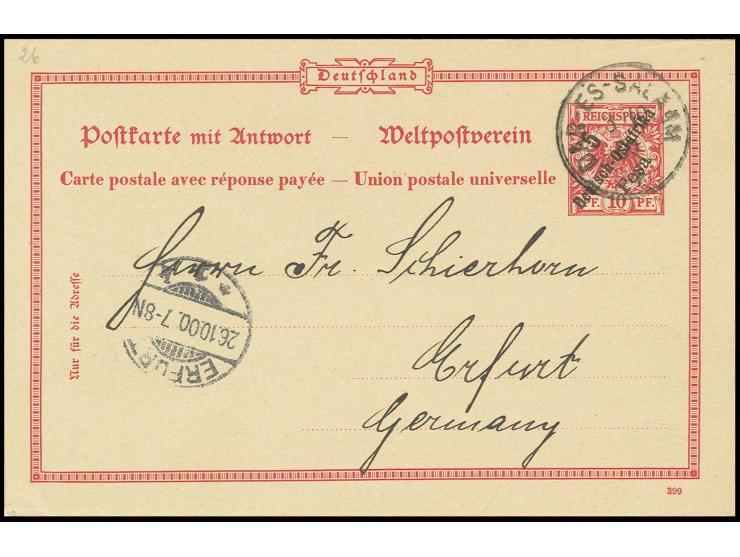 26
Deutschland
DAR-ES-SALAAM
Postkarte mit Antwort — Weltpostverein
Carte postale avec réponse payée — Union postale universelle
REICHSPOST
Deutsch-Ostafrika
5 Pesa
PF. 10 PF.
Herrn Fr. Schierhorn
Erfurt
Germany
Nur für die Adresse
ERFURT
26.10.00. 7-8N
* 1 1
399